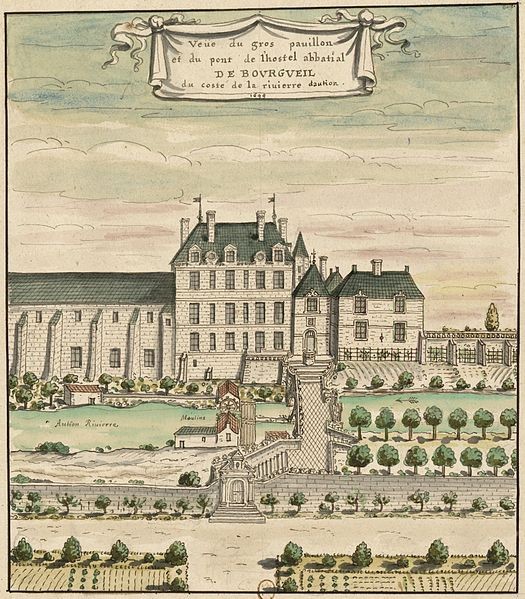 Veue du gros pauillon
et du pont de lhostel abbatial
DE BOVRGVEIL
du coste de la riuierre daution
1699
Aution Riuierre
Moulins